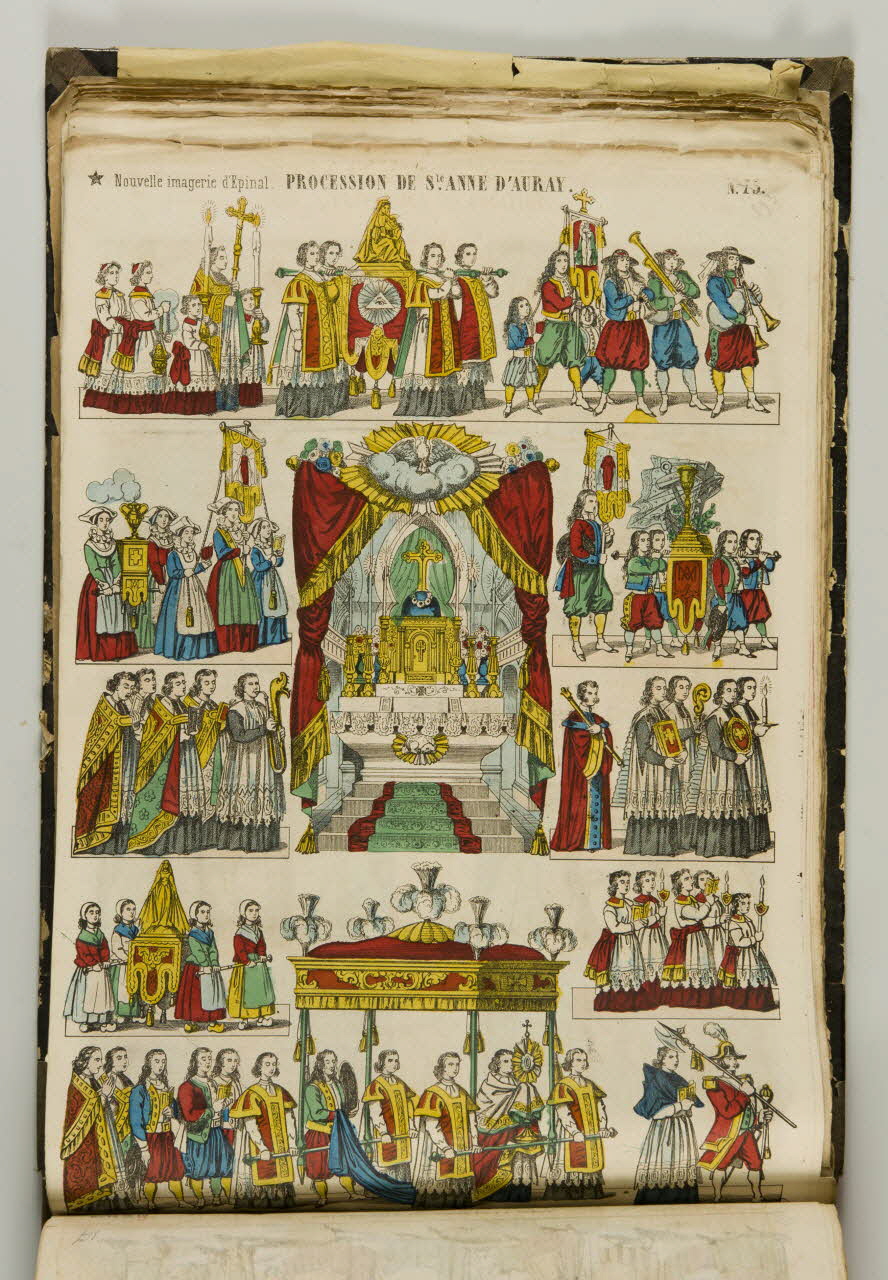 ★ Nouvelle imagerie d'Epinal. PROCESSION DE Ste ANNE D'AURAY. N.° 75.